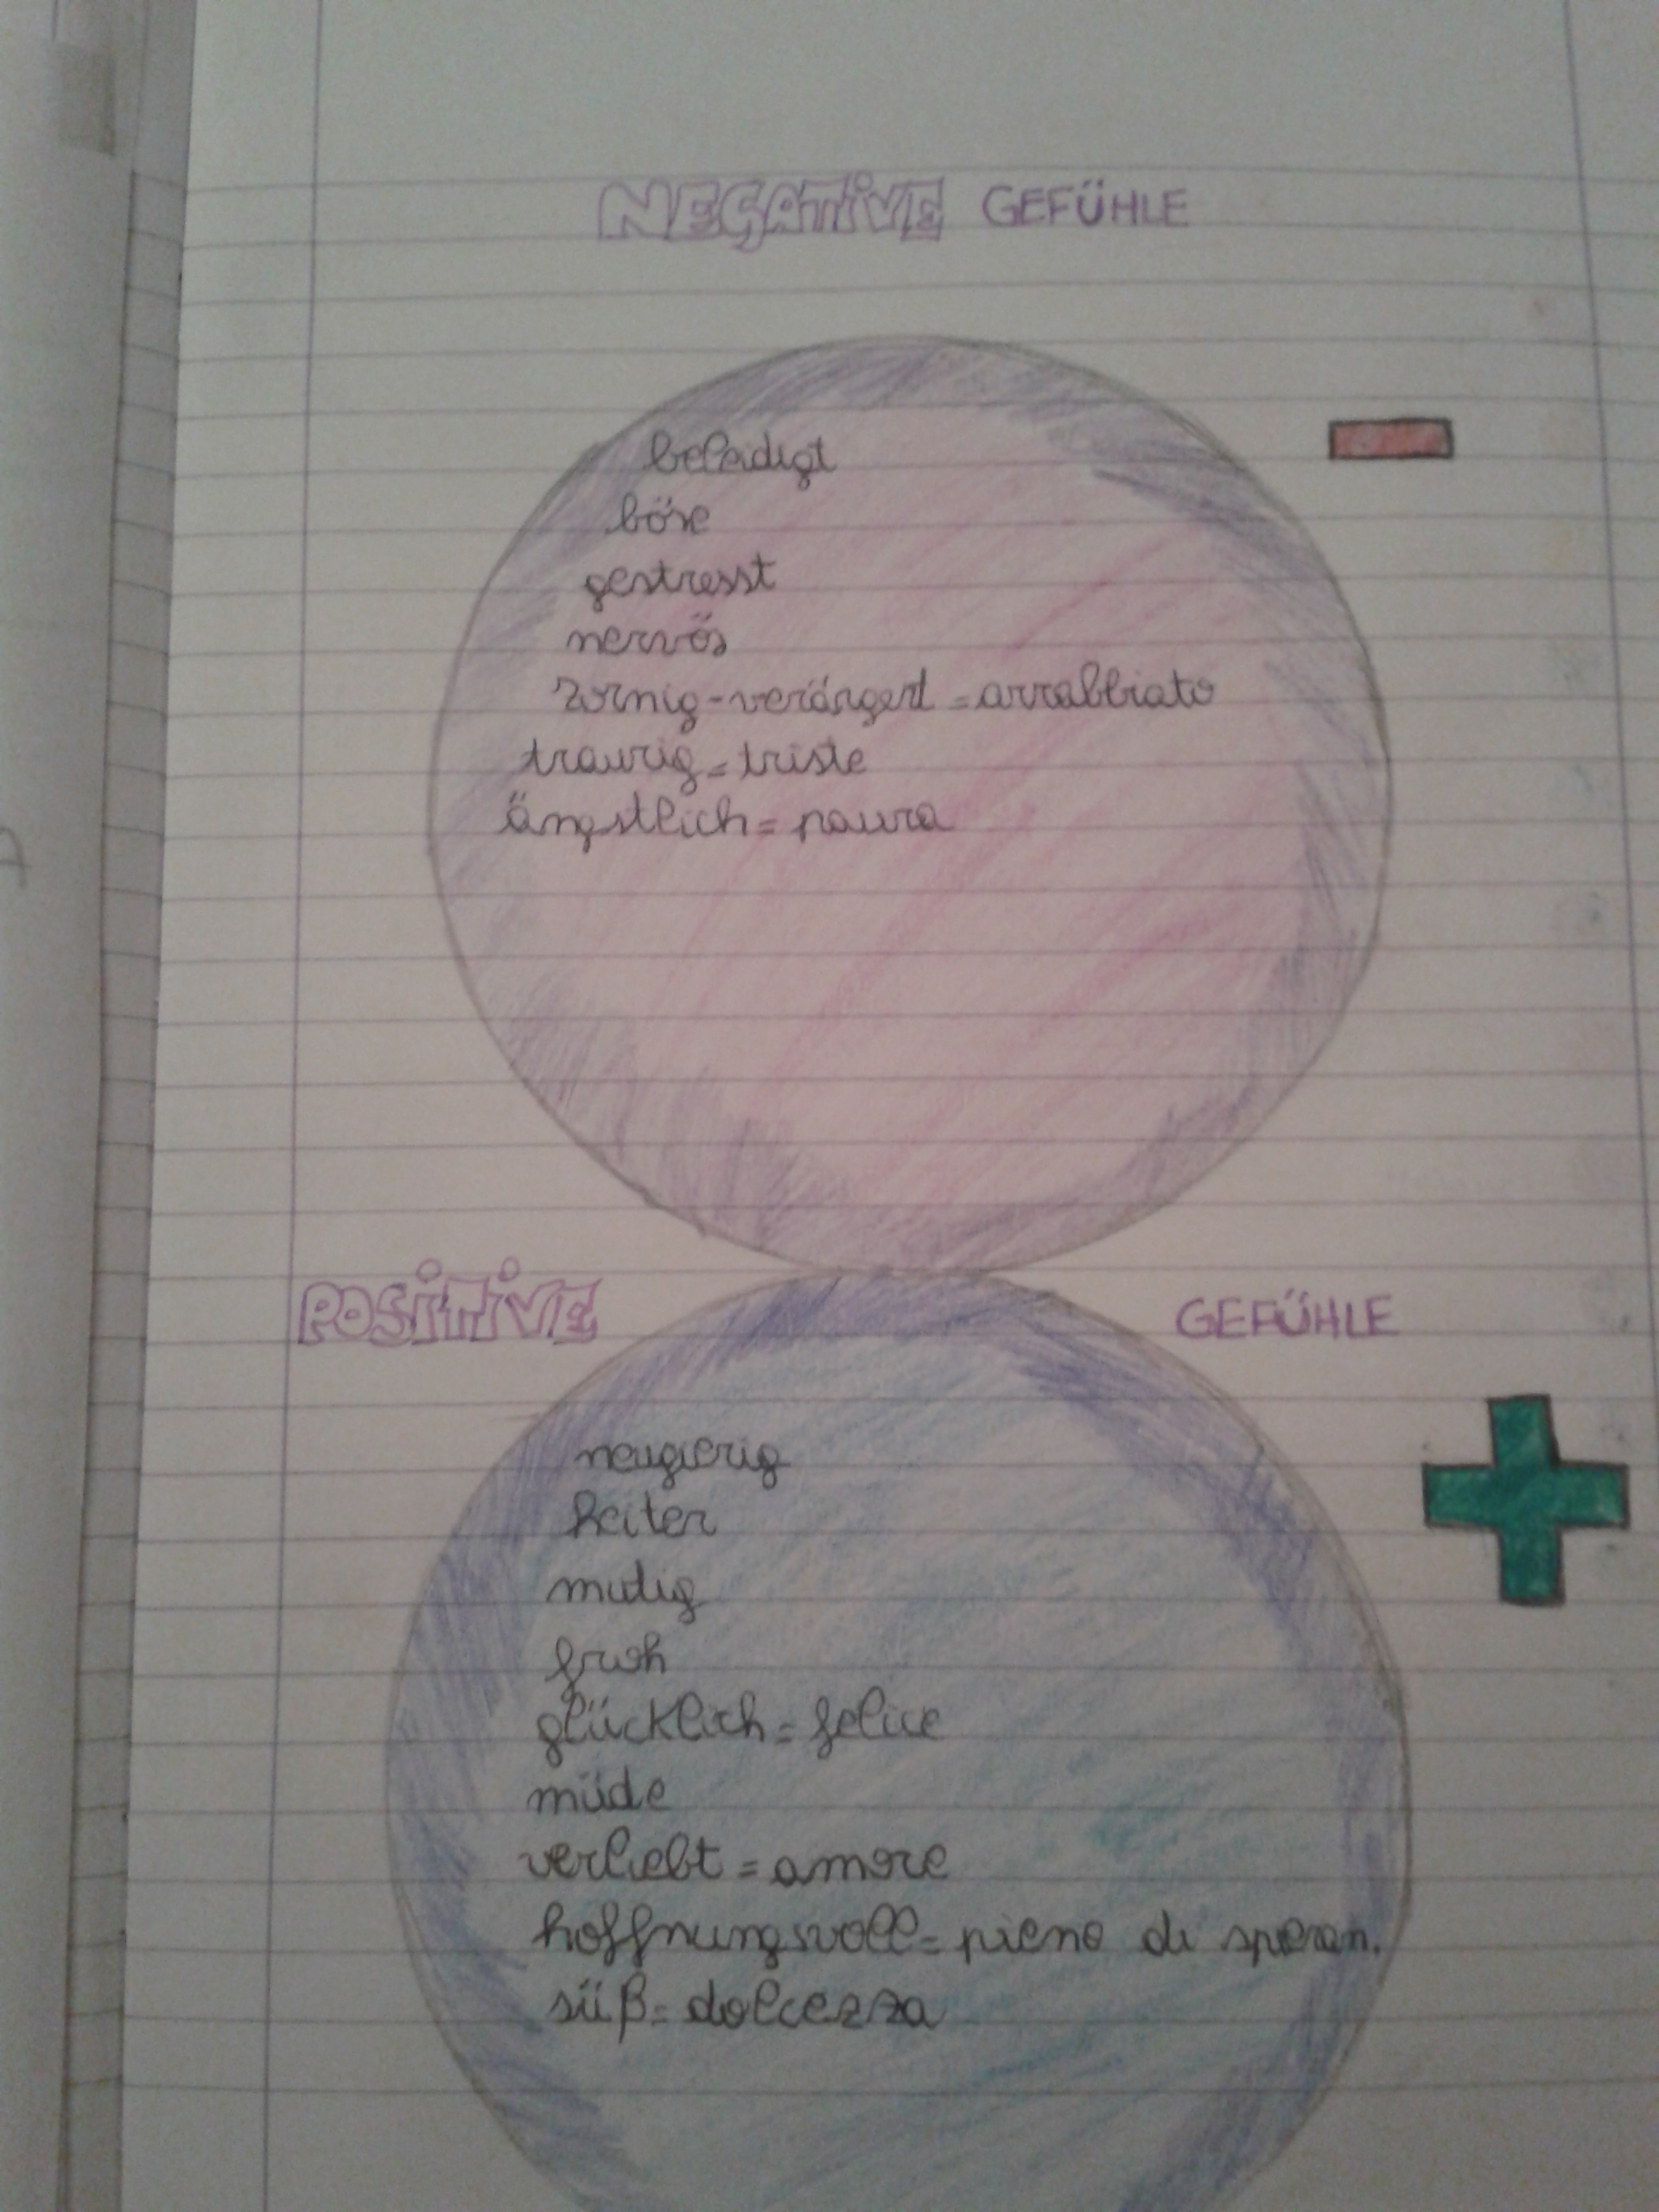 NEGATIVE GEFÜHLE
beleidigt
böse
gestresst
nervös
zornig-verärgert = arrabbiato
traurig = triste
ängstlich = paura
POSITIVE GEFÜHLE
neugierig
heiter
mutig
froh
glücklich = felice
müde
verliebt = amore
hoffnungsvoll = pieno di speran.
süß = dolcezza